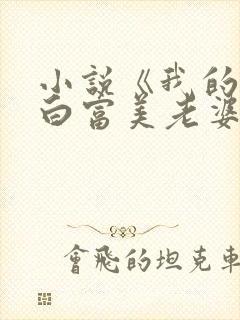 小説《我的
白富美老婆
會飛的坦克車